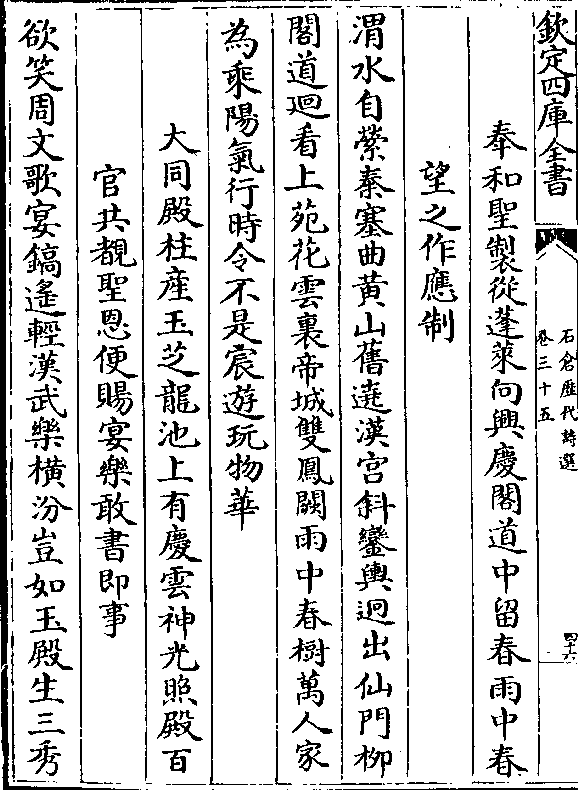 欽定四庫全書
石倉歷代詩選
卷三十五
四十六
奉和聖製從蓬萊向興慶閣道中留春雨中春
望之作應制
渭水自縈秦塞曲黃山舊遶漢宮斜鑾輿迥出仙門栁
閣道廻看上苑花雲裏帝城雙鳳闕雨中春樹萬人家
為乘陽氣行時令不是宸遊玩物華
大同殿柱産玉芝龍池上有慶雲神光照殿百
官共覩聖恩便賜宴樂敢書即事
欲笑周文歌宴鎬遙輕漢武樂橫汾豈如玉殿生三秀